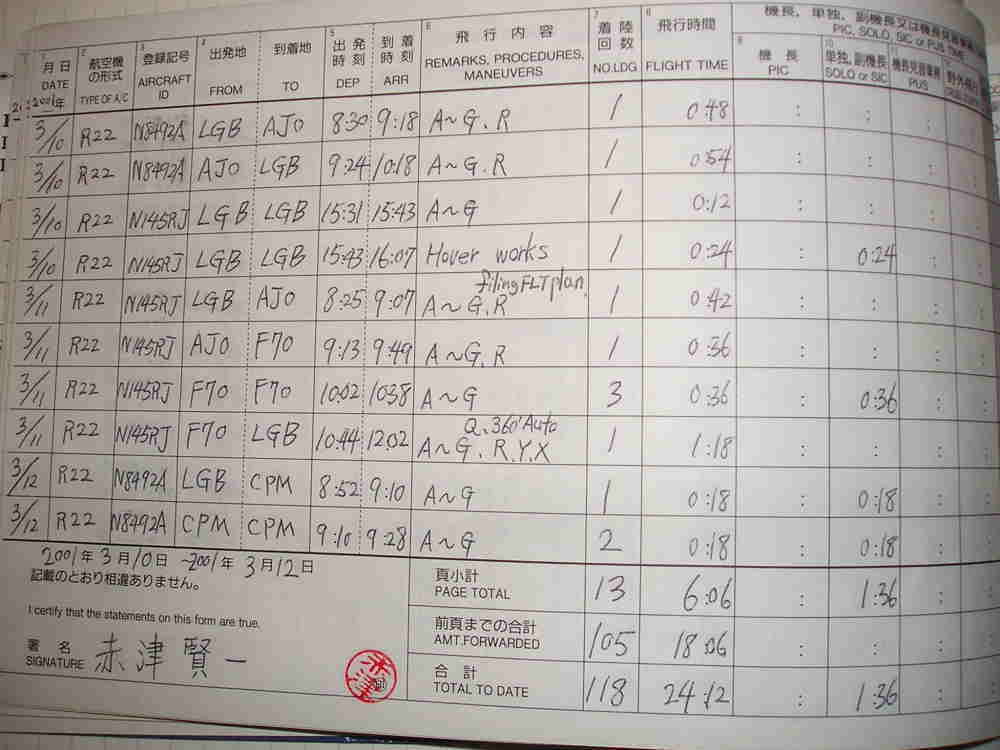 機長、単独、副機長又は機長見習業務
PIC, SOLO, SIC or PUS TIME
1 2 3 4 5 6 7 8 9 10 11
月日 航空機の形式 登録記号 出発地 到着地 出発時刻 到着時刻 飛行内容 着陸回数 飛行時間 機長 単独,副機長 機長見習業務 野外飛行
DATE TYPE OF A/C AIRCRAFT ID FROM TO DEP ARR REMARKS, PROCEDURES, MANEUVERS NO.LDG FLIGHT TIME PIC SOLO or SIC PUS
2001年
3/10 R22 N8492A LGB AJO 8:30 9:18 A~G.R 1 0:48 : : :
3/10 R22 N8492A AJO LGB 9:24 10:18 A~G.R 1 0:54 : : :
3/10 R22 N145RJ LGB LGB 15:31 15:43 A~G 1 0:12 : : :
3/10 R22 N145RJ LGB LGB 15:43 16:07 Hover works 1 0:24 : 0:24 :
filing FLT plan.
3/11 R22 N145RJ LGB AJO 8:25 9:07 A~G.R 1 0:42 : : :
3/11 R22 N145RJ AJO F70 9:13 9:49 A~G.R 1 0:36 : : :
3/11 R22 N145RJ F70 F70 10:02 10:38 A~G 3 0:36 : 0:36 :
Q.360°Auto
3/11 R22 N145RJ F70 LGB 10:44 12:02 A~G.R.Y.X 1 1:18 : : :
3/12 R22 N8492A LGB CPM 8:52 9:10 A~G 1 0:18 : 0:18 :
3/12 R22 N8492A CPM CPM 9:10 9:28 A~G 2 0:18 : 0:18 :
2001年3月10日~2001年3月12日
記載のとおり相違ありません。
I certify that the statements on this form are true.
署名
SIGNATURE 赤津賢一
頁小計
PAGE TOTAL 13 6:06 : 1:36 :
前頁までの合計
AMT.FORWARDED 105 18:06 : : :
合計
TOTAL TO DATE 118 24:12 : 1:36 :